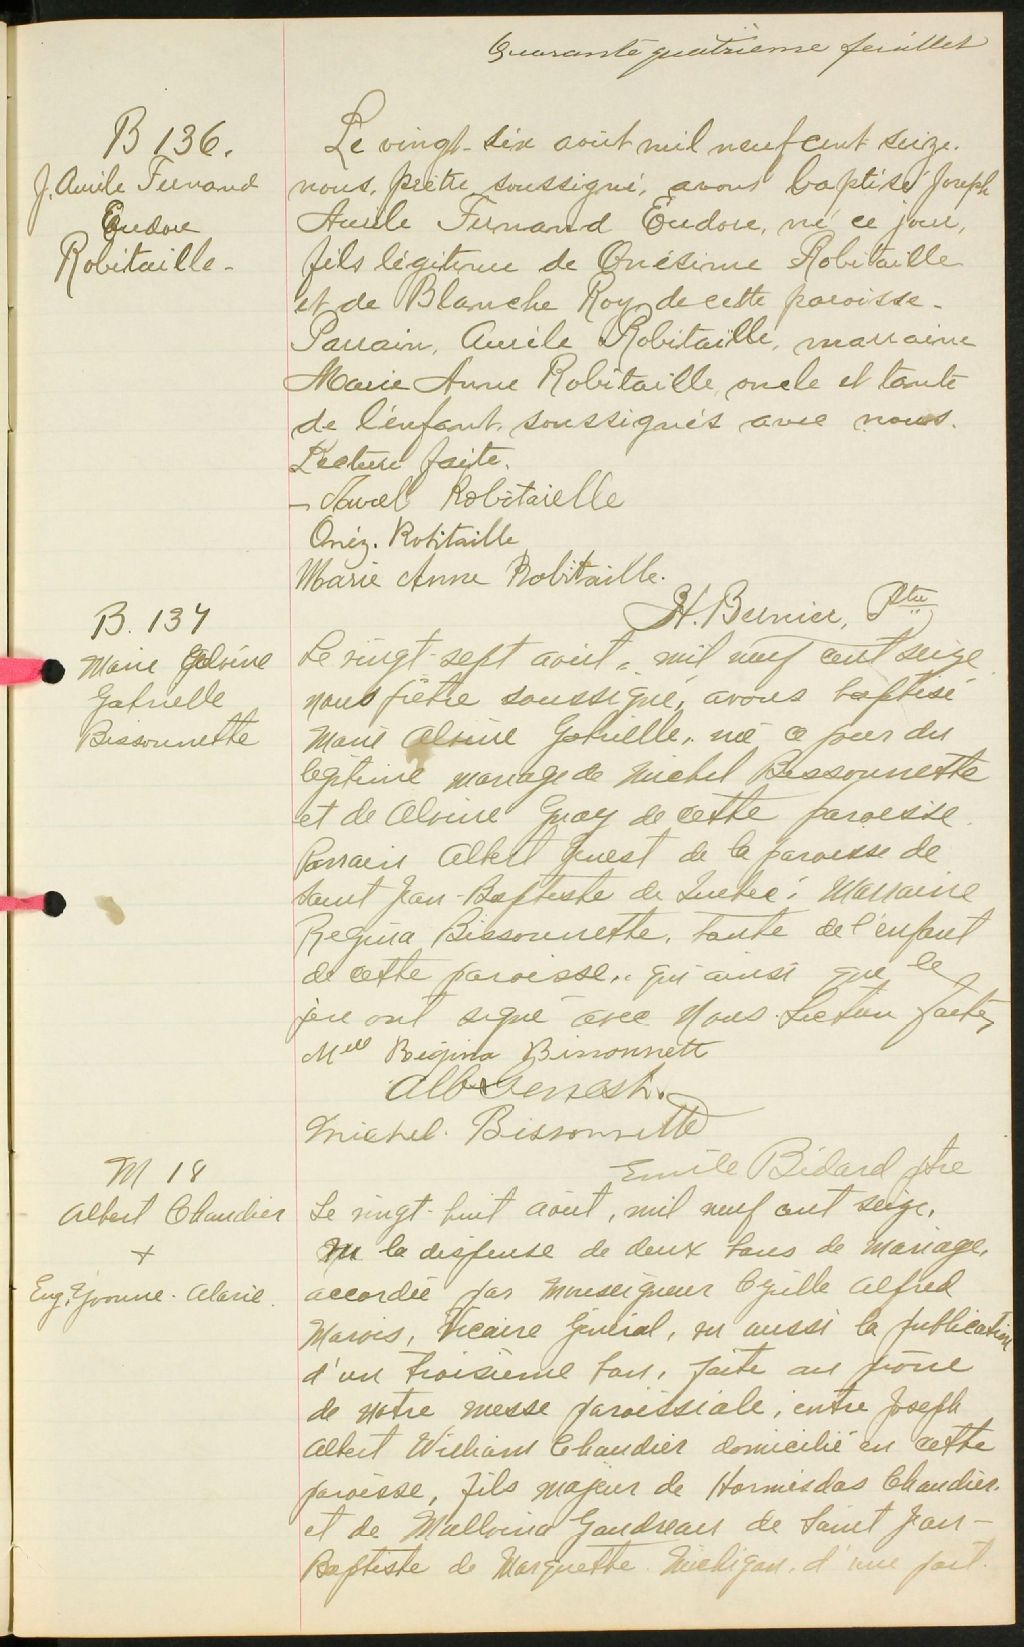 Quarante quatrième feuillet
B 136.
J. Aurèle Fernand
Eudore
Robitaille-
Le vingt-six août mil neuf cent seize.
nous, prêtre soussigné, avons baptisé Joseph
Aurèle Fernand Eudore, né ce jour,
fils légitime de Onésime Robitaille
et de Blanche Roy de cette paroisse-
Parrain, Aurèle Robitaille, marraine
Marie Anne Robitaille, oncle et tante
de l'enfant, soussignés avec nous.
Lecture faite.
Robitaielle
Onéz. Robitaille
Marie Anne Robitaille.
H. Bernier, Ptre
B. 137
Marie
Gabrielle
Bissonnette
Le vingt-sept août, mil neuf cent seize
nous prêtre soussigné, avons baptisé
Marie Alvine Gabrielle, née ce jour du
légitime mariage de Michel Bissonnette
et de Alvine Guay de cette paroisse.
Parrain Albert Genest de la paroisse de
Saint Jean-Baptiste de Québec; Marraine
Régina Bissonnette, tante de l'enfant
de cette paroisse, qui ainsi que le
père ont signé avec Nous. Lecture faite,
Mlle Régina Bissonnett
Alb Genest.
Michel Bissonnette
Emile Bédard ptre
M 18
Albert Chaudier
+
Eug. Yvonne. Alarie.
Le vingt-huit août, mil neuf cent seize,
Vu la dispense de deux bans de mariage,
accordée par Monseigneur Cyrille Alfred
Marois, Vicaire Général, vu aussi la publication
d'un troisième ban, faite au prône
de notre messe paroissiale, entre Joseph
Albert William Chaudier domicilié en cette
paroisse, fils majeur de Hormisdas Chaudier
et de Mallvina Gaudreau de Saint Jean-
Baptiste de Marquette Michigan, d'une part.